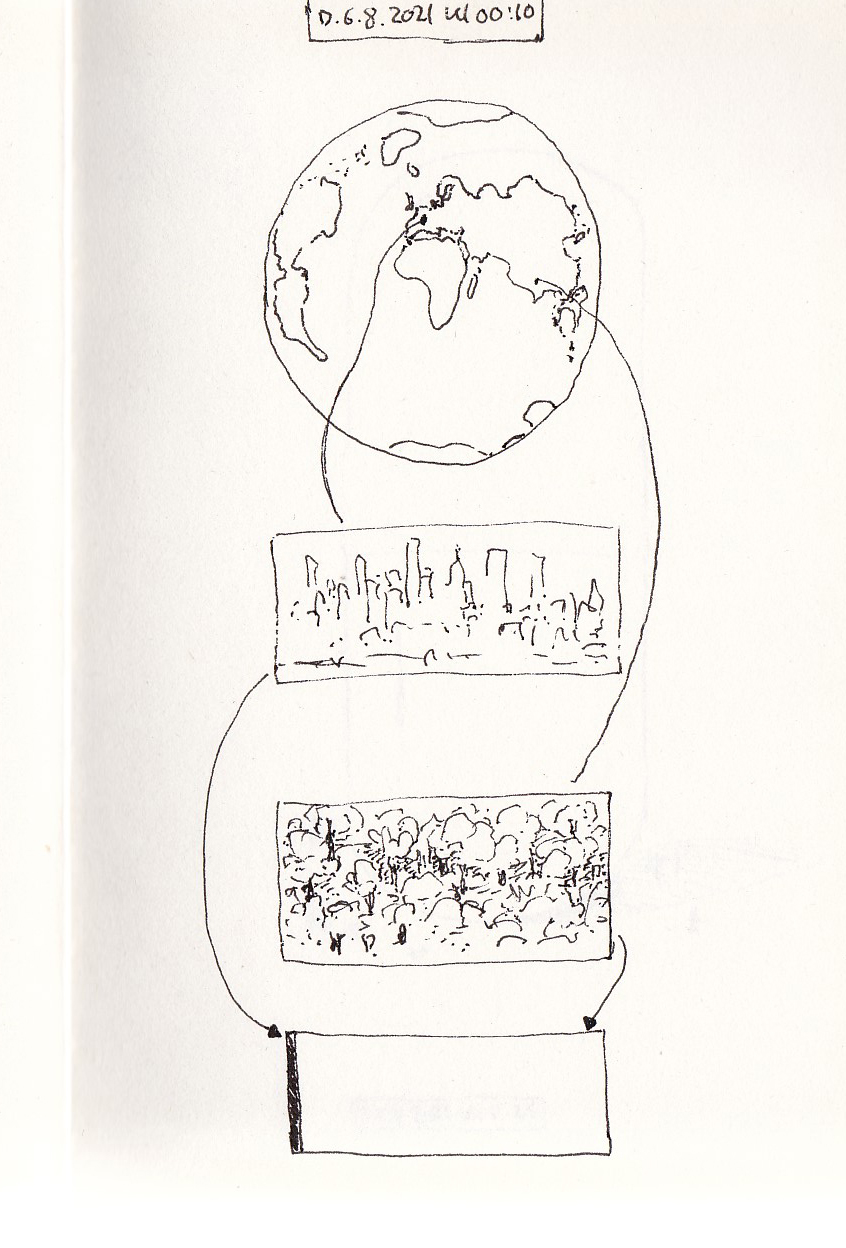 D.6.8.2021 W 00:10